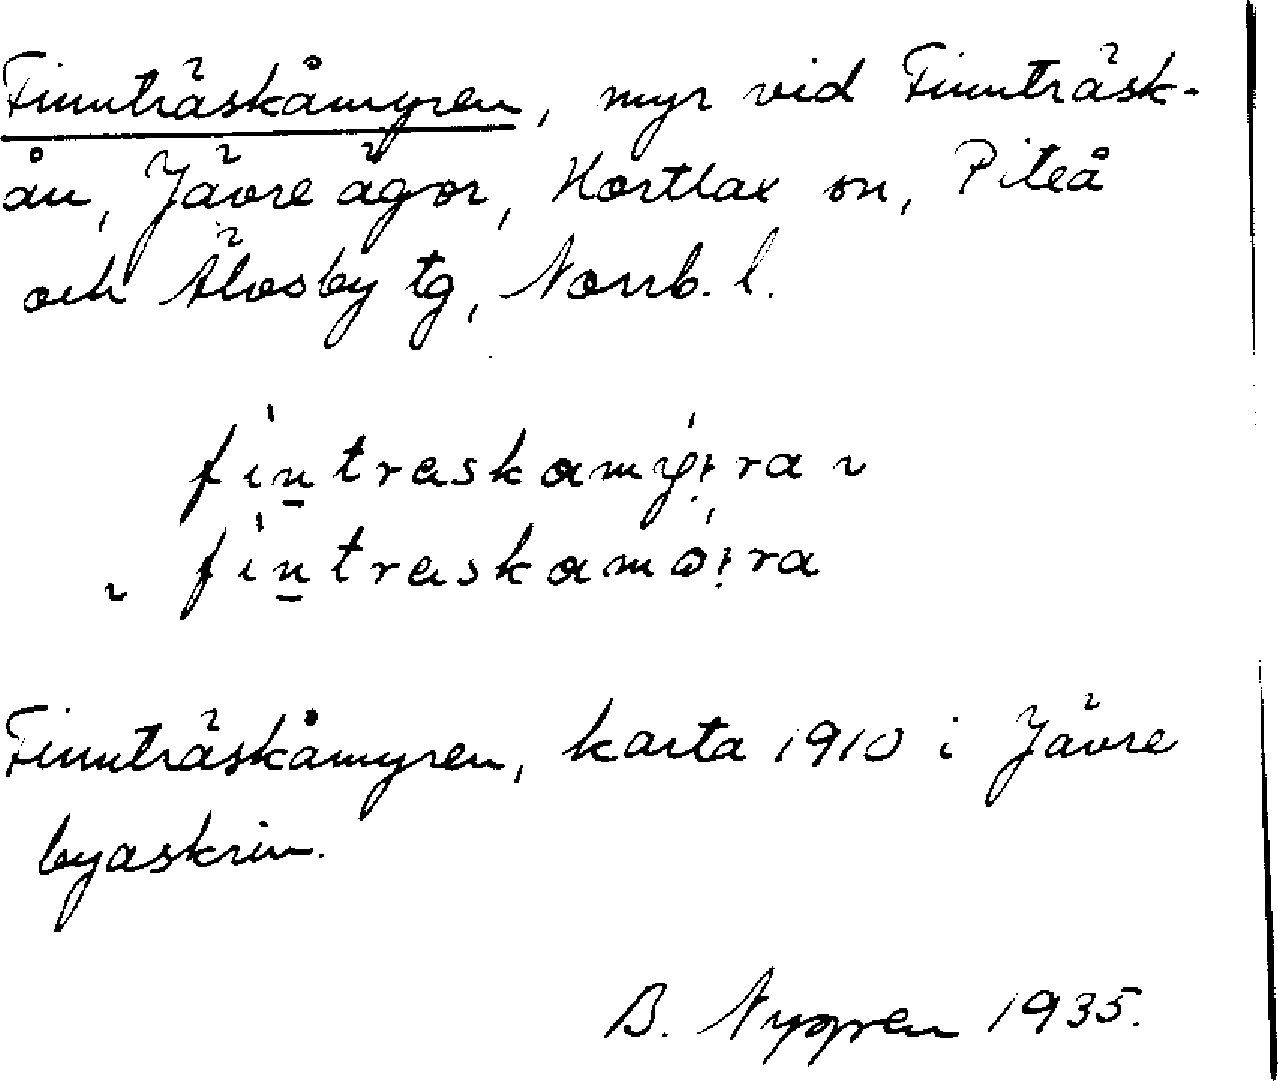 Finnträskåmyren, myr vid Finnträsk-
ån, Jävre ägor, Hortlax sn, Piteå
och Älvsby tg, Norrb. l.
fintraskamyra ~
~ fintraskamöra
Finnträskåmyren, karta 1910 i Jävre
byaskrin.
B. Nygren 1935.